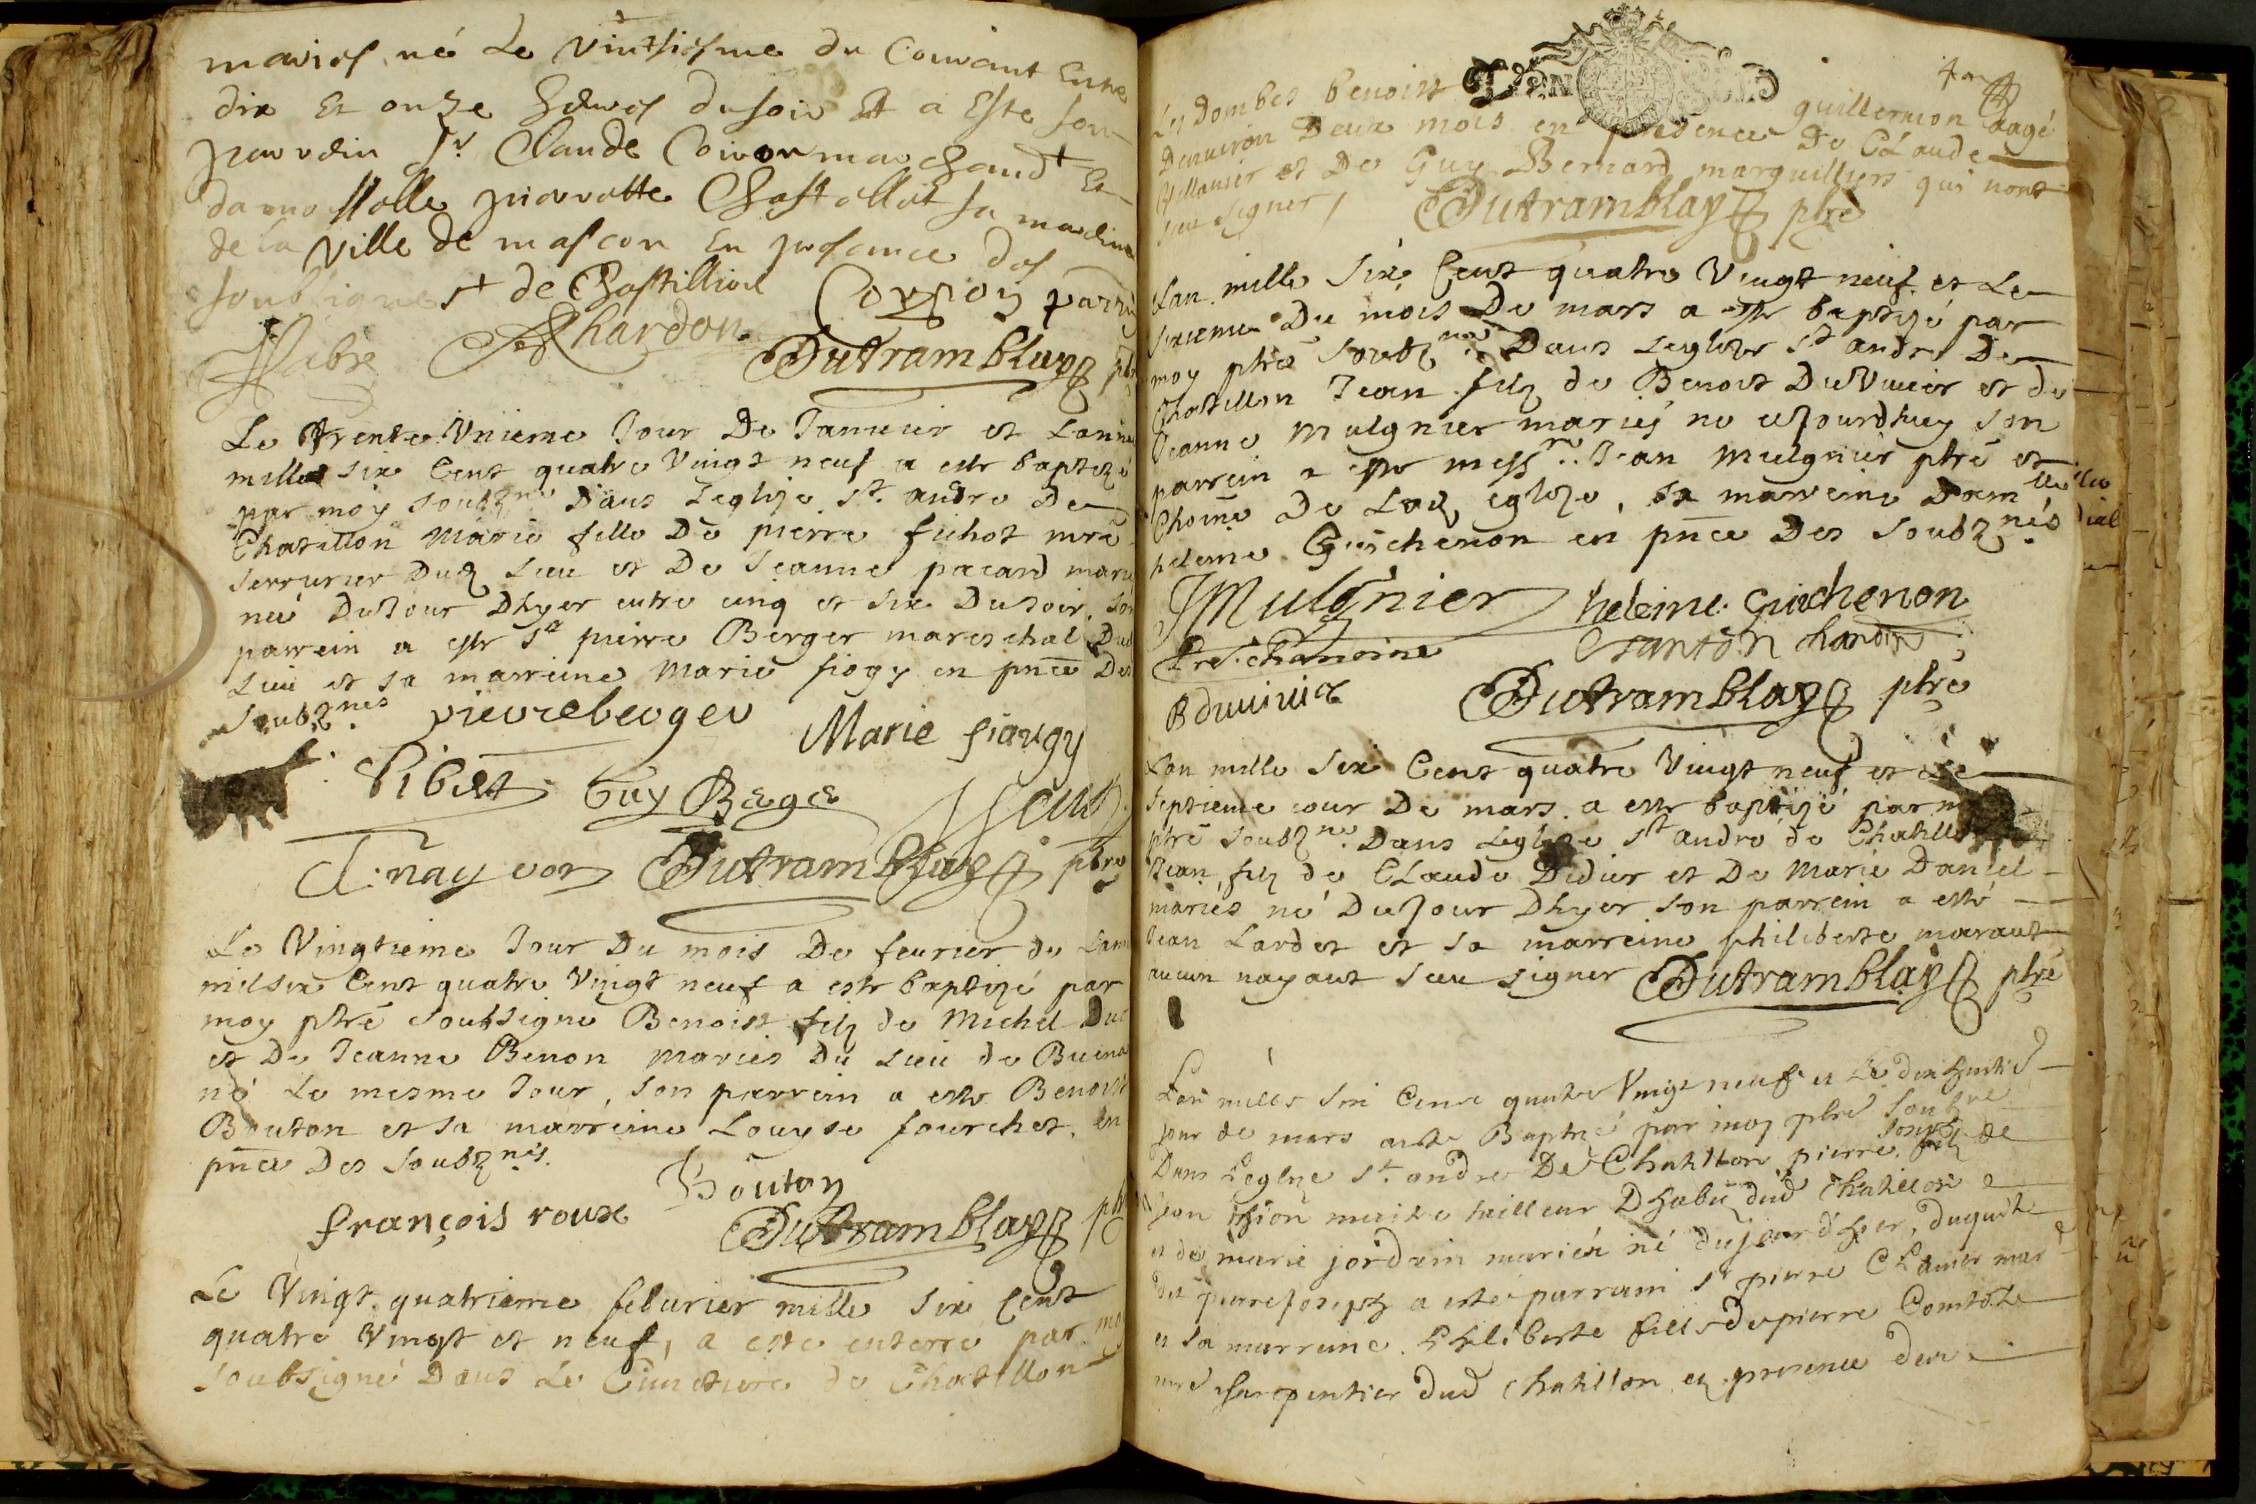 mariés né Le Vintiesme du Courant Entre
dix Et onze heures du soir Et a Este son
parrein Sr. Claude Corron marchand Et
damoiselle pierrette Chastellot sa mareine
de la Ville de mascon En presence des
soubsignes de Chastillion Corron parrin
Fabre Chardon
Dutramblay ptre
Le Trente Vnieme Jour De Januier et Lannee
mille six Cent quatre Vingt neuf a este baptizé
par moy soubzne Dans Leglize St. andré De
Chatillon Marie fille De pierre fichot mre
serrurier Dud Lieu et De Jeanne pacard mariés
née Du Jour Dhyer entre cinq et six Du soir, son
parrein a este Sr pierre Berger mareschal Dud
Lieu et sa marreine Marie fiogy en pnce Des
soubznes pierre berger
Marie fiaugy
Vibert Guy Berger
Dutramblay ptre
Le Vingtieme Jour Du mois De feurier de Lannee
mil six Cent quatre Vingt neuf a este baptizé par
moy ptre soubsigne Benoist filz de Michel Duc
et De Jeanne Benon Mariés Du Lieu de Buena
né Le mesme Jour, son parrein a este Benoist
Bouton et sa marreine Louyse fourchet, en
pnce Des soubznes.
Bouton
françois roux
Dutramblay ptre
Le Vingt quatrieme feburier mille six Cent
quatre Vingt et neuf, a este enterré par moy
soubsigné Dans Le Cimetiere de Chatillon
Les Dombes benoist guillermon aagé
Denuiron Deux mois en presence De Claude
Villanier et De Guy Bernard marguilliers qui nont
sceu signer, Dutramblay ptre
Lan mille six Cent quatre Vingt neuf et Le
sixieme Du mois De mars a este baptizé par
moy ptre soubzne Dans Leglize St andré De
Chatillon Jean filz de Benoist Duvuier et de
Jeanne Mulgnier mariés né ce Jourdhuy son
parrein a este messre Jean Mulgnier ptre et
Choine De Lad eglize, sa marreine Damlle
heleine Guichenon en pnce Des soubznes
JMulgnier heleine. Guichenon
Pret. chanoine
B duuiuie
Dutramblay ptre
Lan mille six Cent quatre Vingt neuf et Le
septieme iour De mars a este baptizé par moy
ptre soubzne Dans Leglize St andré de Chatillon
Jean filz de Claude Didier et De Marie Daniel
mariés né Du Jour Dhyer son parrein a esté
Jean Lardet et sa marreine philiberte maraut
aucun nayant sceu signer Dutramblay ptre
Lan mille six Cent quatre Vingt neuf et Le dix huitie
jour de mars a este Baptizé par moy ptre soubzne
Dans Leglize St. andré De Chatillon pierre joseph filz de
Jean maitre tailleur Dhabis dud Chatillon
et de marie jordain mariés né du jour dhier, duquel
dit pierre joseph a esté parrain Sr pierre Clauier mar
et sa marreine Philiberte fille de pierre Comtoste
mre charpentier dud Chatillon en presence des